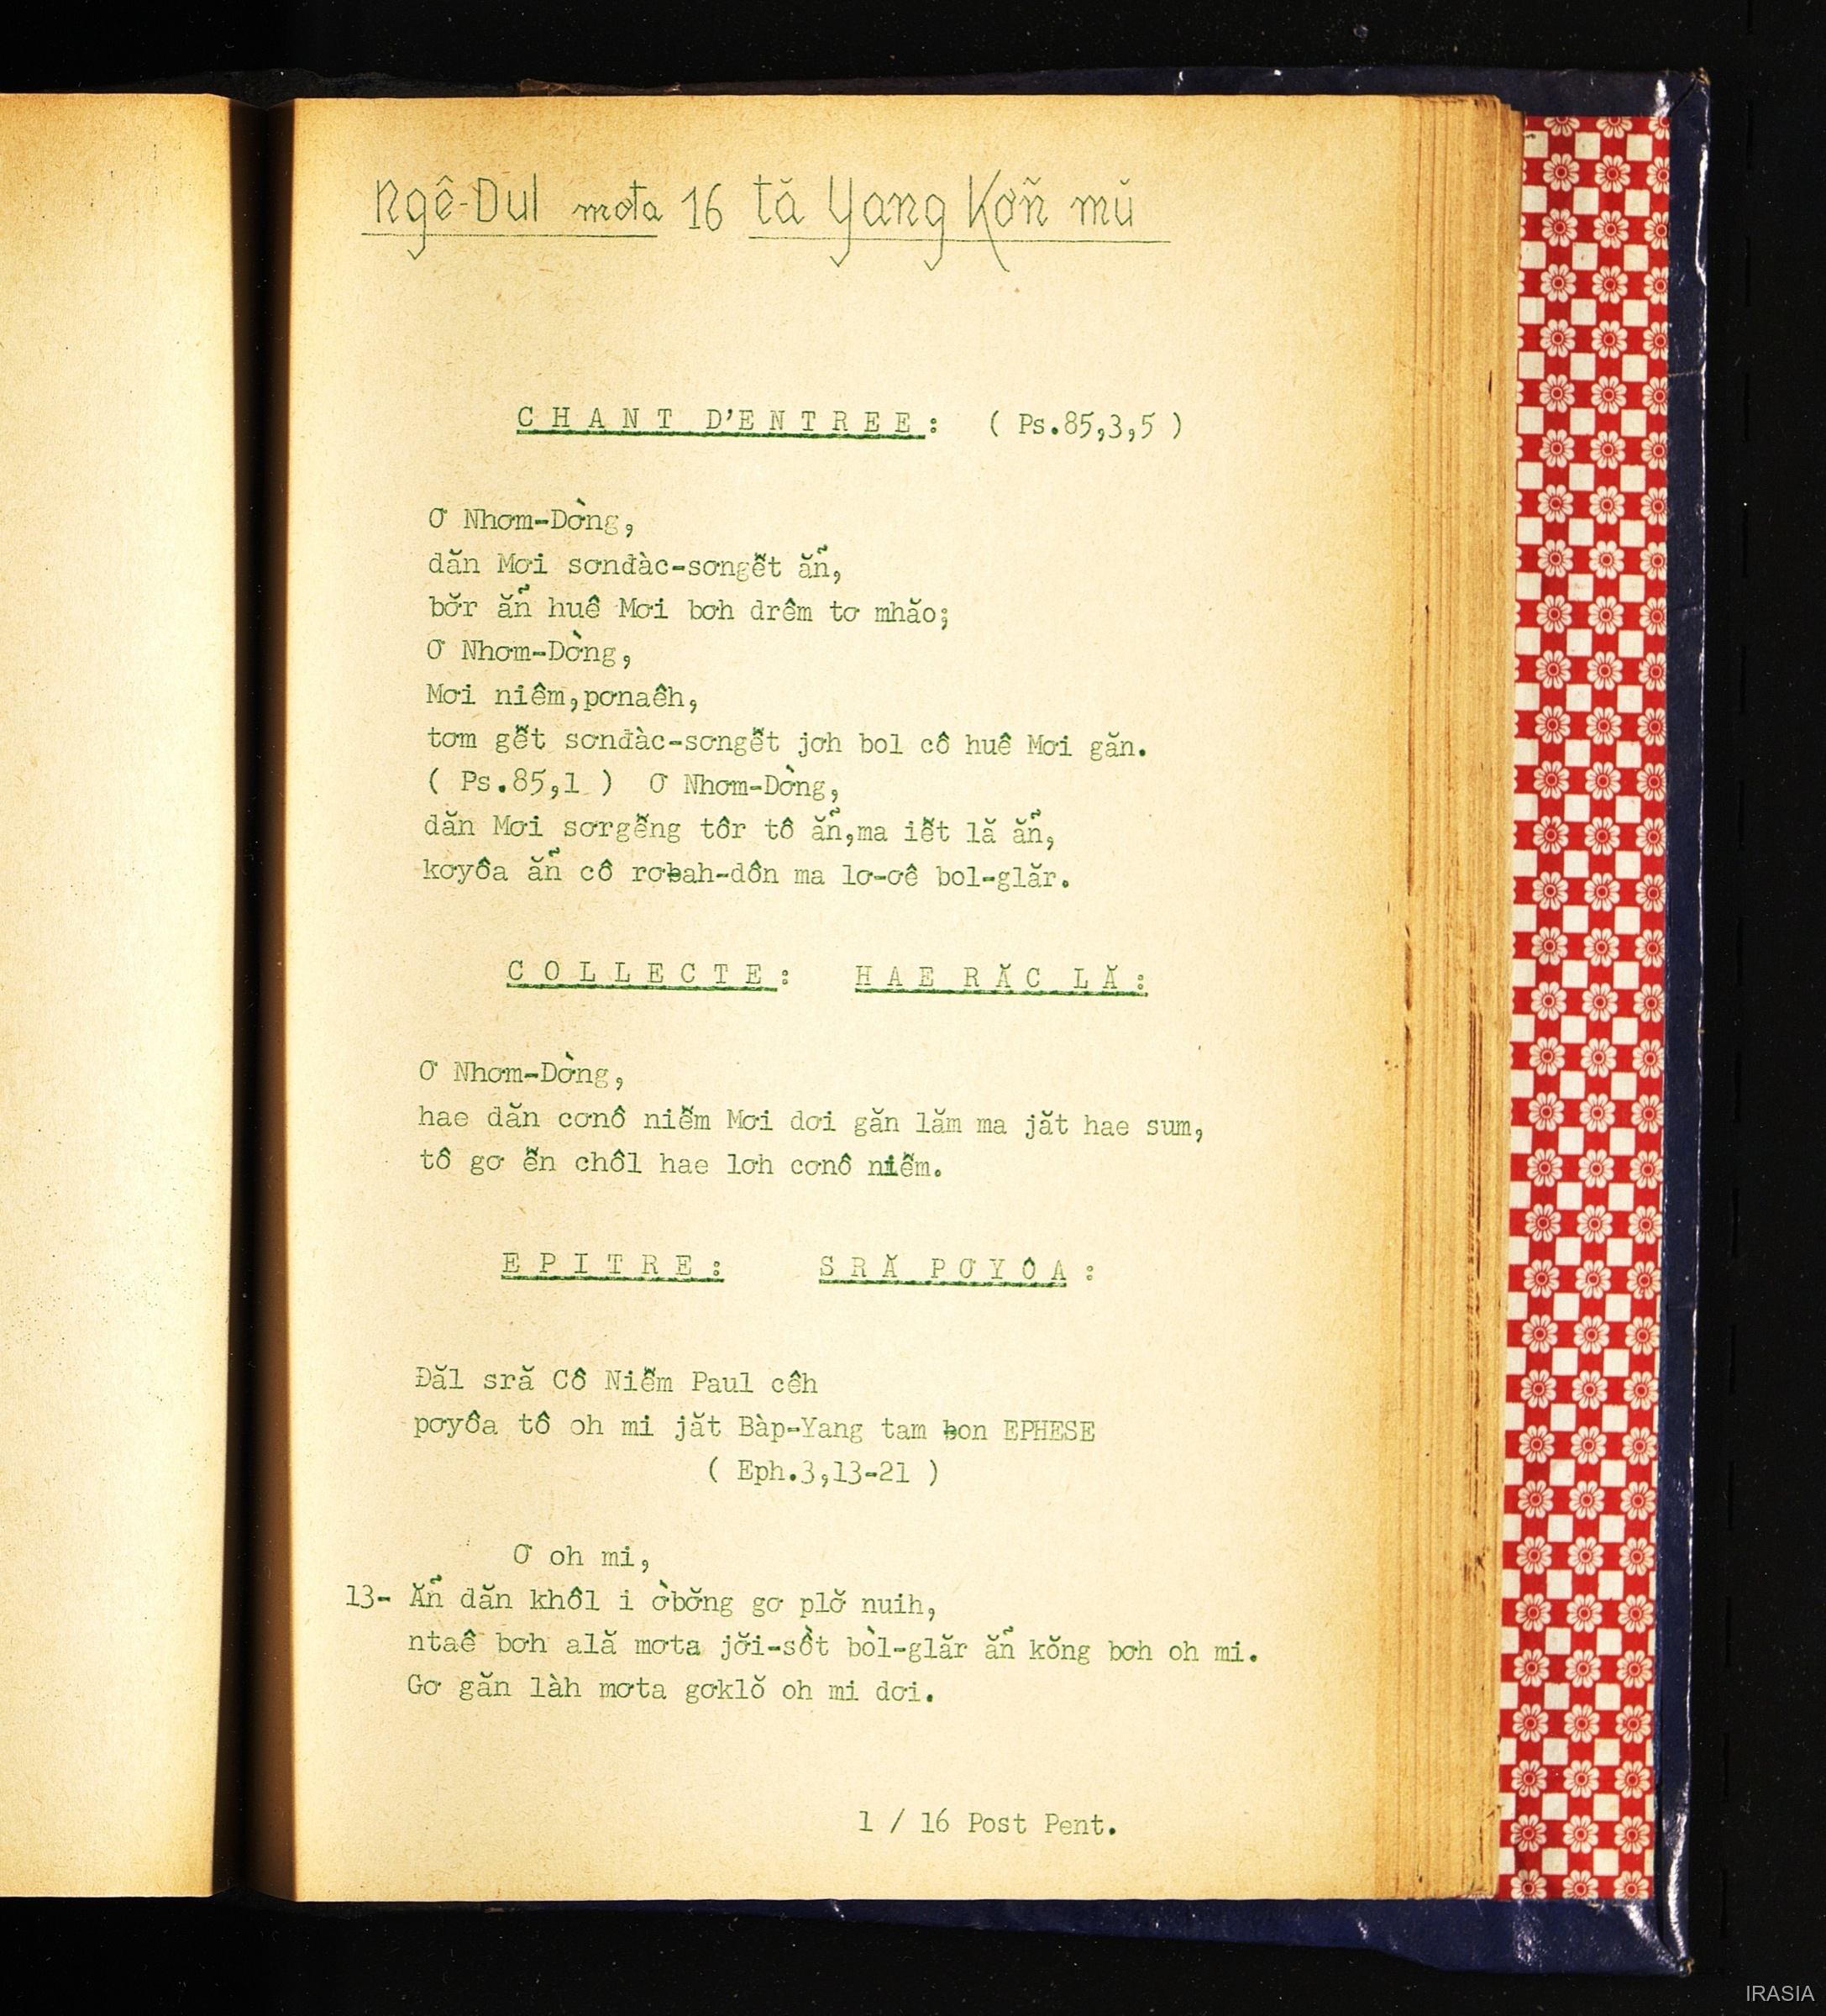 Ngê-Dul mơta 16 tă Yang Kơñ mŭ
CHANT D'ENTREE: ( Ps.85,3,5 )
Ơ Nhơm-Dờng,
dăn Mơi sơnđàc-sơngễt ăñ,
bơ̆r ăñ huê Mơi bơh drêm tơ mhăo;
Ơ Nhơm-Dờng,
Mơi niêm,pơnaêh,
tơm gễt sơnđàc-sơngễt jơh bol cô huê Mơi găn.
( Ps.85,1 ) Ơ Nhơm-Dờng,
dăn Mơi sơrgễng tôr tô ăñ,ma iễt lă ăñ,
kơyôa ăñ cô rơƀah-dôn ma lơ-ơê bol-glăr.
COLLECTE: HAE RĂC LĂ:
Ơ Nhơm-Dờng,
hae dăn cơnô niễm Mơi dơi găn lăm ma jăt hae sum,
tô gơ ễn chôl hae lơh cơnô niễm.
EPITRE: SRĂ PƠYÔA:
Đăl sră Cô Niễm Paul cêh
pơyôa tô oh mi jăt Bàp-Yang tam ƀon EPHESE
( Eph.3,13-21 )
Ơ oh mi,
13- Ăñ dăn khôl i ờbơ̆ng gơ plơ̆ nuih,
ntaê bơh ală mơta jơ̆i-sồt bòl-glăr ăñ kŏng bơh oh mi.
Gơ găn làh mơta gơklŏ oh mi dơi.
1 / 16 Post Pent.
IRASIA